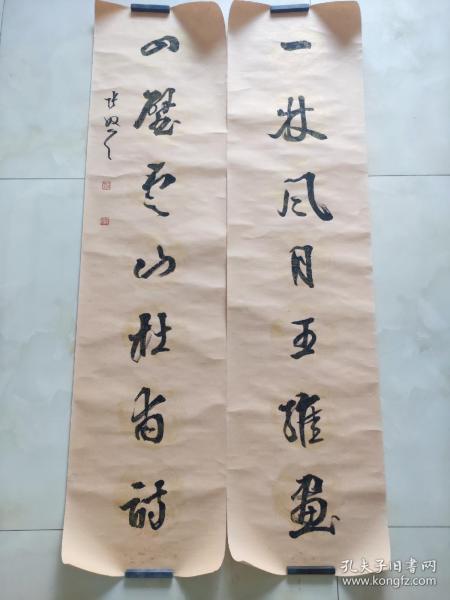 一牀风月王維畫
四壁雲山杜甫詩
孔夫子旧书网
www.kongfz.com